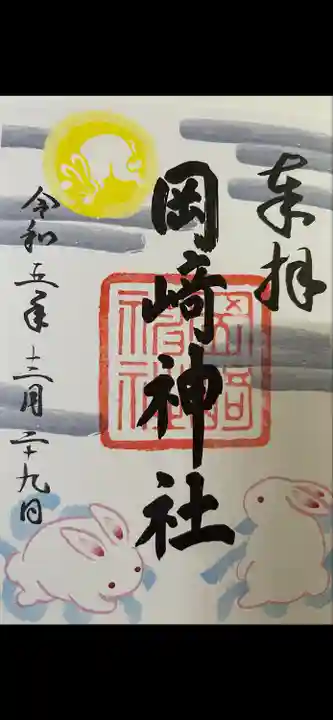 奉拝
岡﨑神社
岡﨑神社
令和五年十二月二十九日